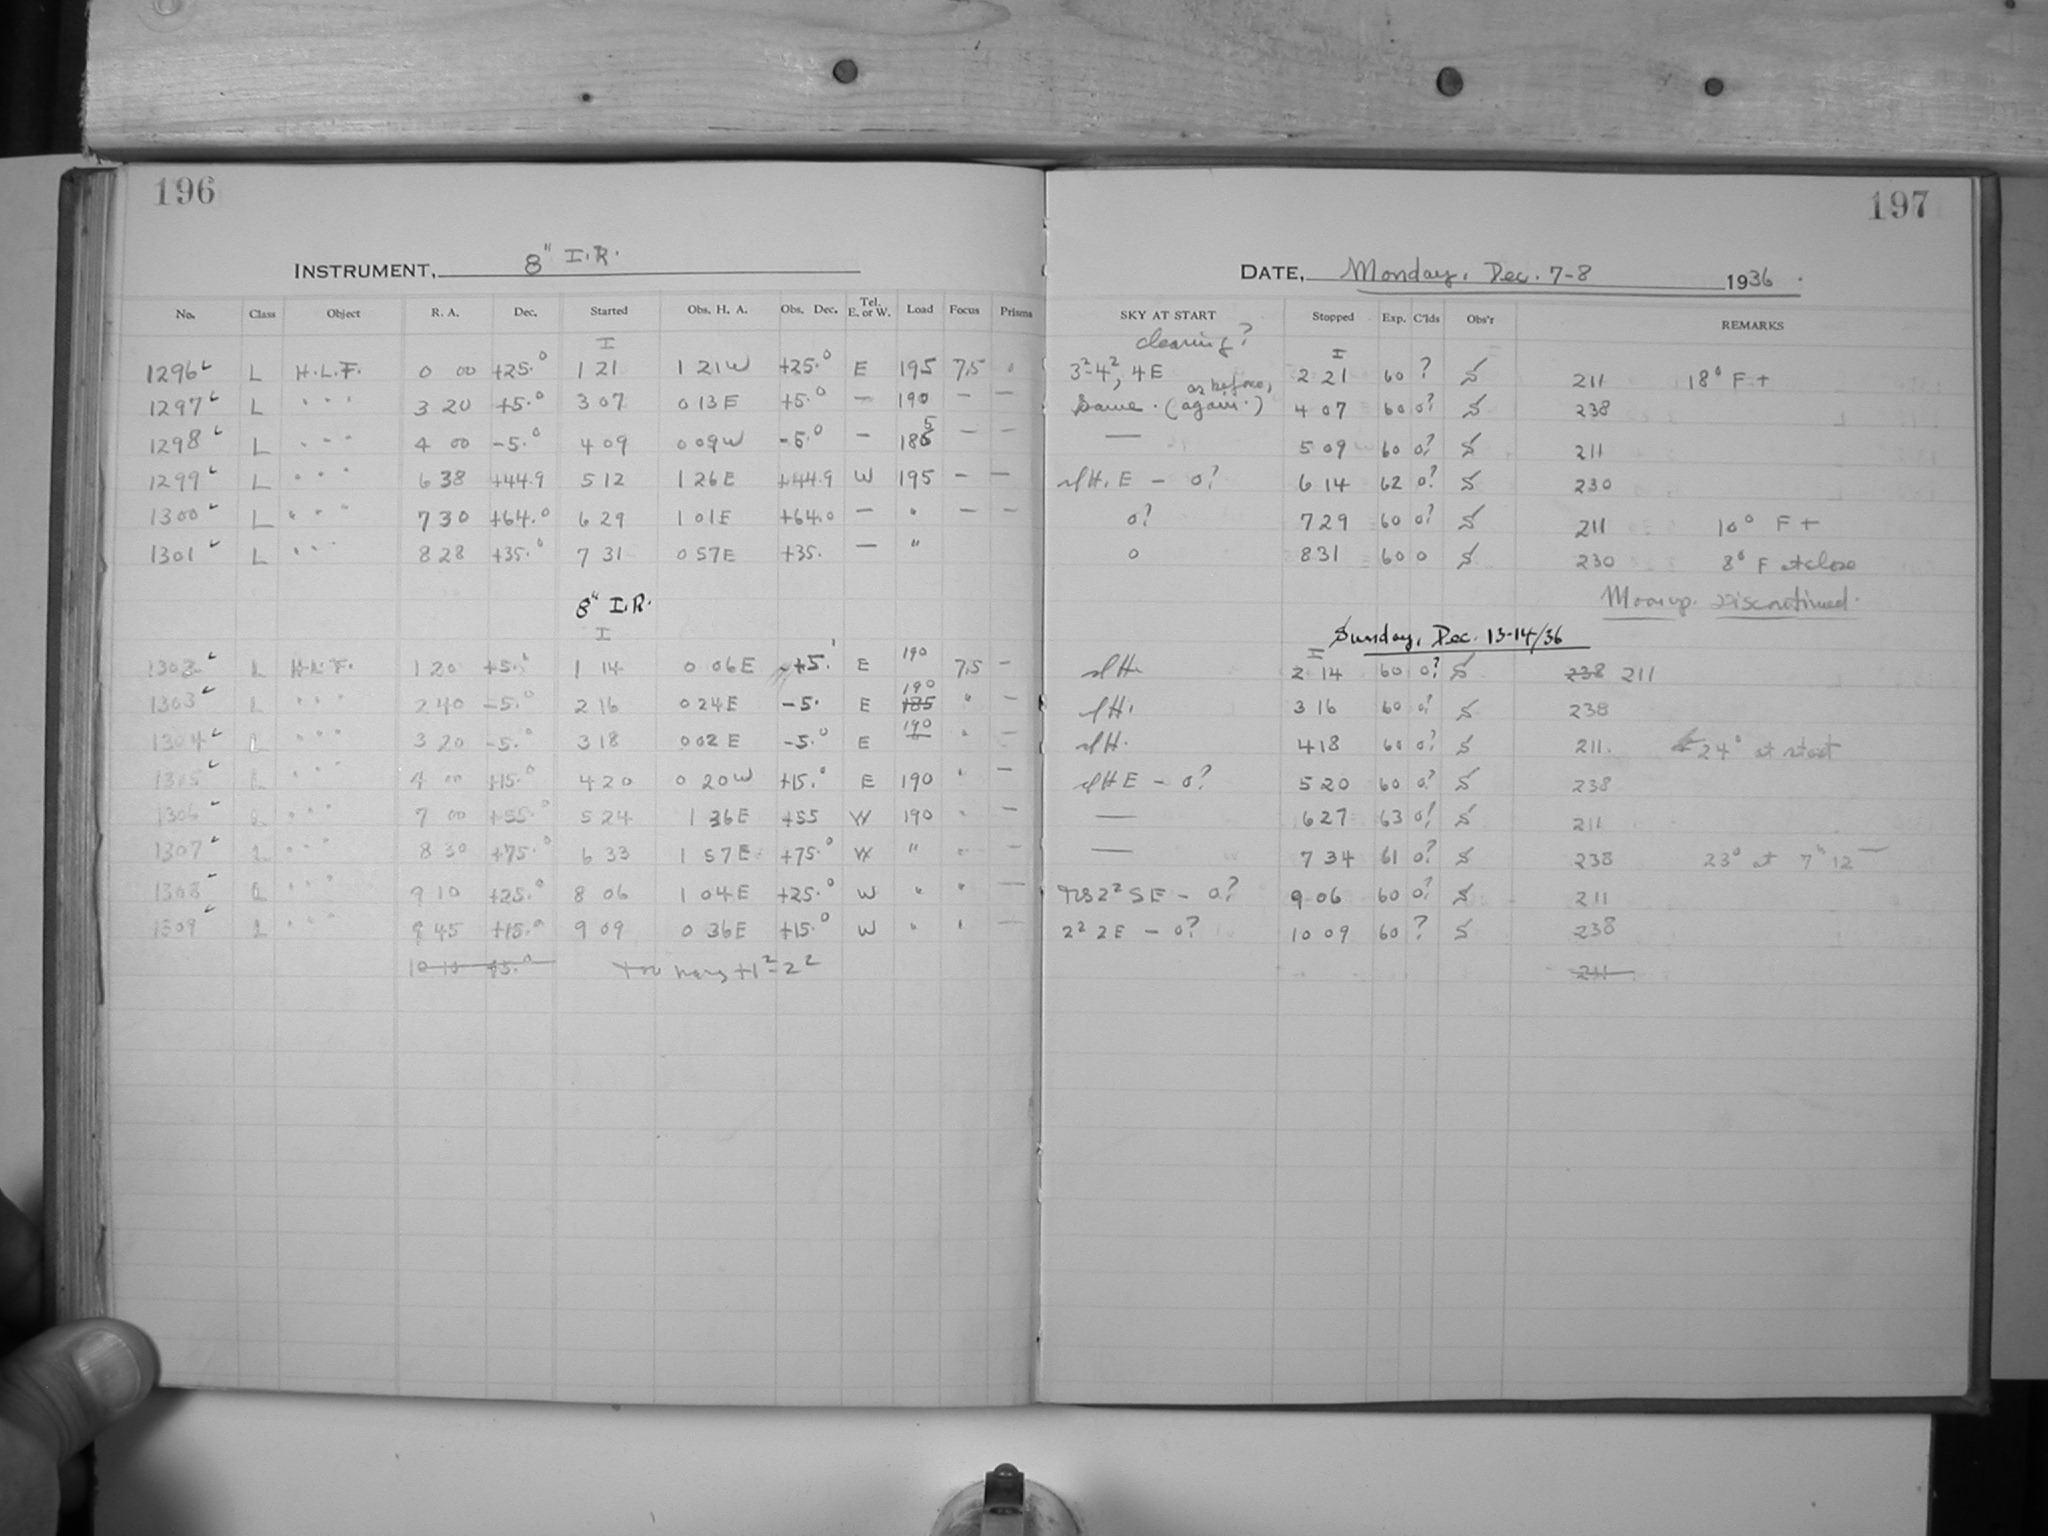 196
197
INSTRUMENT, 8" I.R.
DATE, Monday, Dec. 7-8 1936.
No. Class Object R. A. Dec. Started Obs. H. A. Obs. Dec. Tel. E. or W. Load Focus Prisms SKY AT START Stopped Exp. C'lds Obs'r REMARKS
I clearing? I
1296 L H.L.F. 0 00 +25.0 1 21 1 21W +25.0 E 195 7.5 3²-4², 4E 2 21 60 ? S 211 18° F +
1297 L " " " 3 20 +5.0 3 07 0 13E +5.0 — 190 — — Same. (as before, again.) 4 07 60 0? S 238
1298 L " " " 4 00 -5.0 4 09 0 09W -5.0 — 185 — — — 5 09 60 0? S 211
1299 L " " " 6 38 +44.9 5 12 1 26E +44.9 W 195 — — slH. E — 0? 6 14 62 0? S 230
1300 L " " " 7 30 +64.0 6 29 1 01E +64.0 — " — — 0? 7 29 60 0? S 211 10° F +
1301 L " " " 8 28 +35.0 7 31 0 57E +35. — " 0 8 31 60 0 S 230 8° F at close
Moon up. Discontinued.
8" I.R. Sunday, Dec. 13-14/36
I I
1302 L H.L.F. 1 20 +5. 1 14 0 06E +5. E 190 7.5 — slH. 2 14 60 0? S 238 211
1303 L " " 2 40 -5.0 2 16 0 24E -5. E 190 185 " — slH. 3 16 60 0? S 238
1304 L " " " 3 20 -5.0 3 18 0 02E -5.0 E 190 " — slH. 4 18 60 0? S 211. 24° at start
1305 L " " " 4 00 +15.0 4 20 0 20W +15.0 E 190 " — slH E — 0? 5 20 60 0? S 238
1306 L " " " 7 00 +55. 5 24 1 36E +55 W 190 " — — 6 27 63 0? S 211
1307 L " " " 8 30 +75.0 6 33 1 57E +75.0 W " " — — 7 34 61 0? S 238 23° at 7h 12m
1308 L " " " 9 10 +25.0 8 06 1 04E +25.0 W " " — 2² SE — 0? 9 06 60 0? S 211
1309 L " " " 9 45 +15.0 9 09 0 36E +15.0 W " " — 2² 2E — 0? 10 09 60 ? S 238
10 10 +5.0 too hazy +1²-2² 211